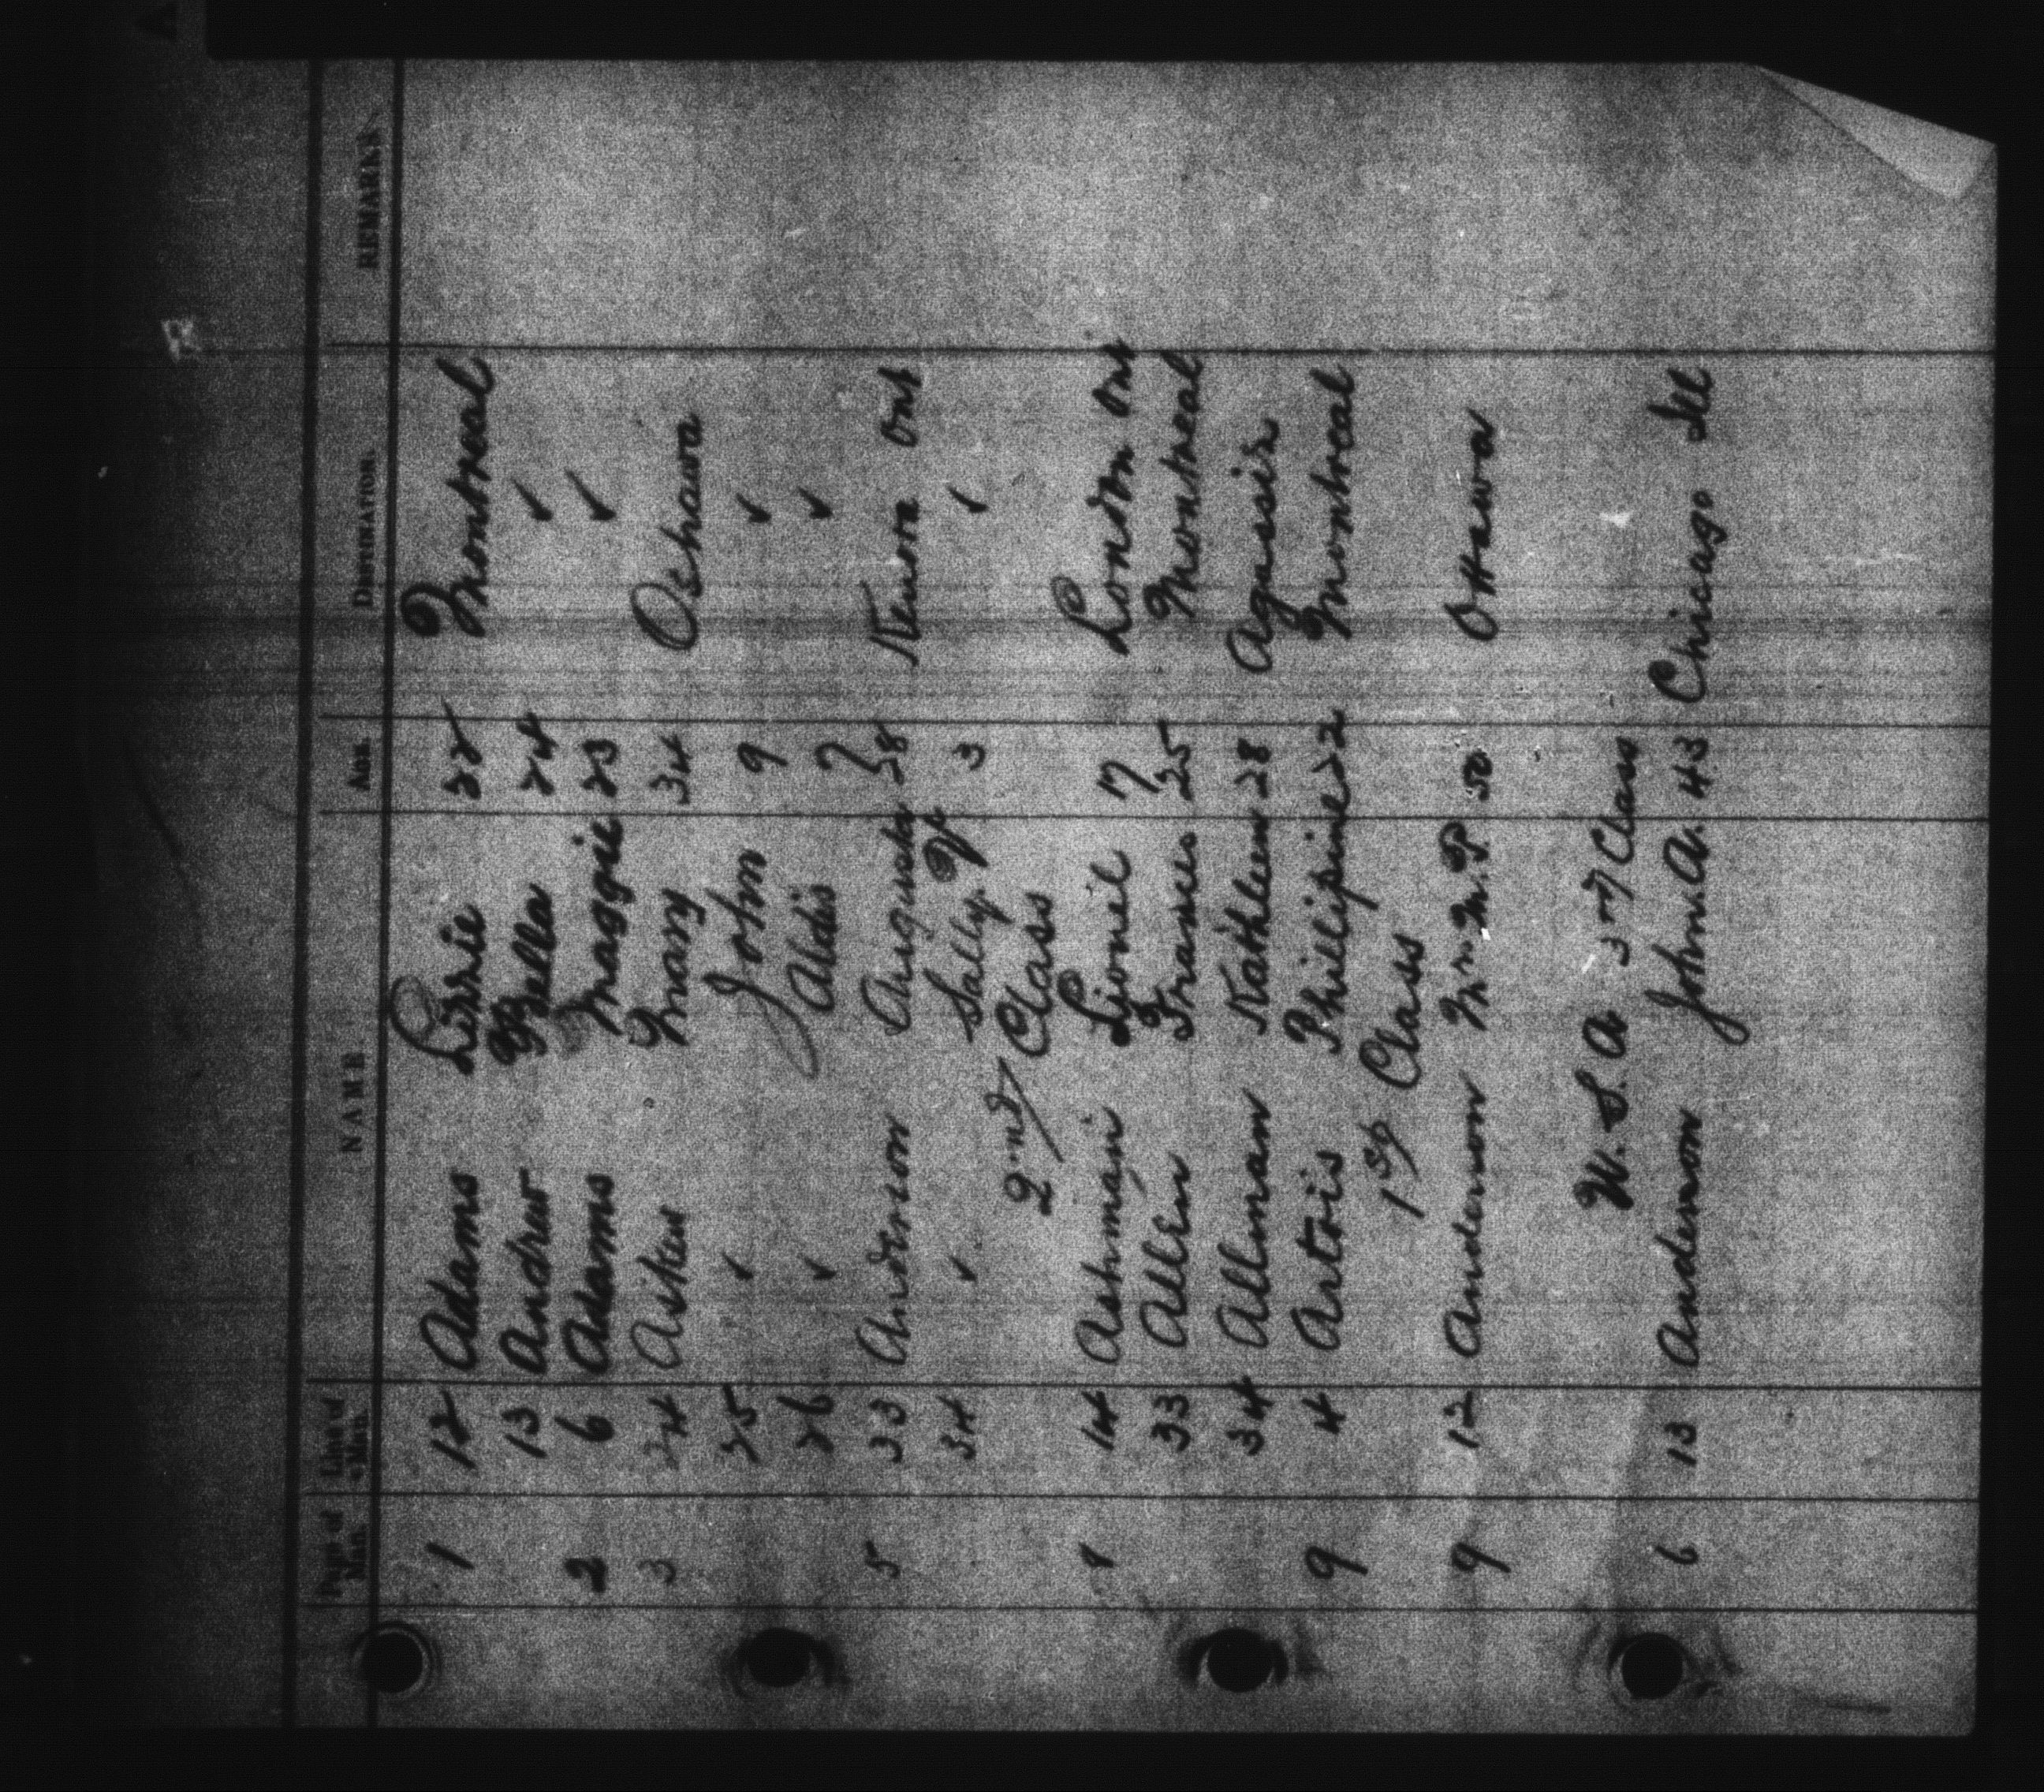 Page of Man. Line of Man. NAME AGE. DESTINATION. REMARKS
1 12 Adams Lizzie 22 Montreal
13 Andrew Bella 24 ✓
2 6 Adams Maggie 23 ✓
3 24 Askew Mary 34 Oshawa
25 ✓ John 9 ✓
26 ✓ Aldis 7 ✓
5 33 Anderson Augusta 28 Kenora Ont
34 ✓ Sally 3 ✓
2nd/ Class
8 14 Ashman Lionel 17 London Ont
33 Allen Frances 25 Montreal
34 Allman Kathleen 28 Agassiz
9 4 Artois Phillipine 22 Montreal
1st/ Class
9 12 Anderson Mrs M. P 50 Ottawa
U. S. A 3rd Class
6 13 Anderson John. A. 43 Chicago Ill